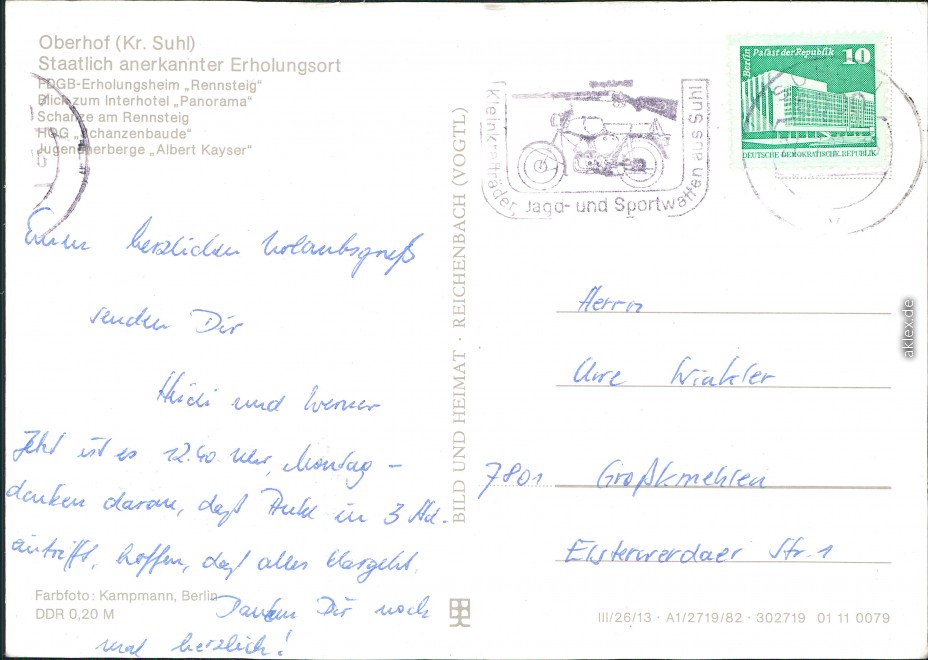 Oberhof (Kr. Suhl)
Staatlich anerkannter Erholungsort
FDGB-Erholungsheim „Rennsteig"
Blick zum Interhotel „Panorama"
Schanze am Rennsteig
HOG „Schanzenbaude"
Jugendherberge „Albert Kayser"
Einen herzlichen Urlaubsgruß
senden Dir
Heidi und Werner
Jetzt ist es 12.40 Uhr, Montag –
denken daran, daß in 3 Std.
eintrifft, hoffen, daß alles klargeht.
Danken Dir noch
mal herzlich!
Farbfoto: Kampmann, Berlin
DDR 0,20 M
BILD UND HEIMAT · REICHENBACH (VOGTL)
Kleinkrafträder, Jagd- und Sportwaffen aus Suhl
Berlin Palast der Republik 10
DEUTSCHE DEMOKRATISCHE REPUBLIK
Herrn
Uwe Winkler
7801 Großkmehlen
Elsterwerdaer Str. 1
III/26/13 · A1/2719/82 · 302719 01 11 0079
aklex.de